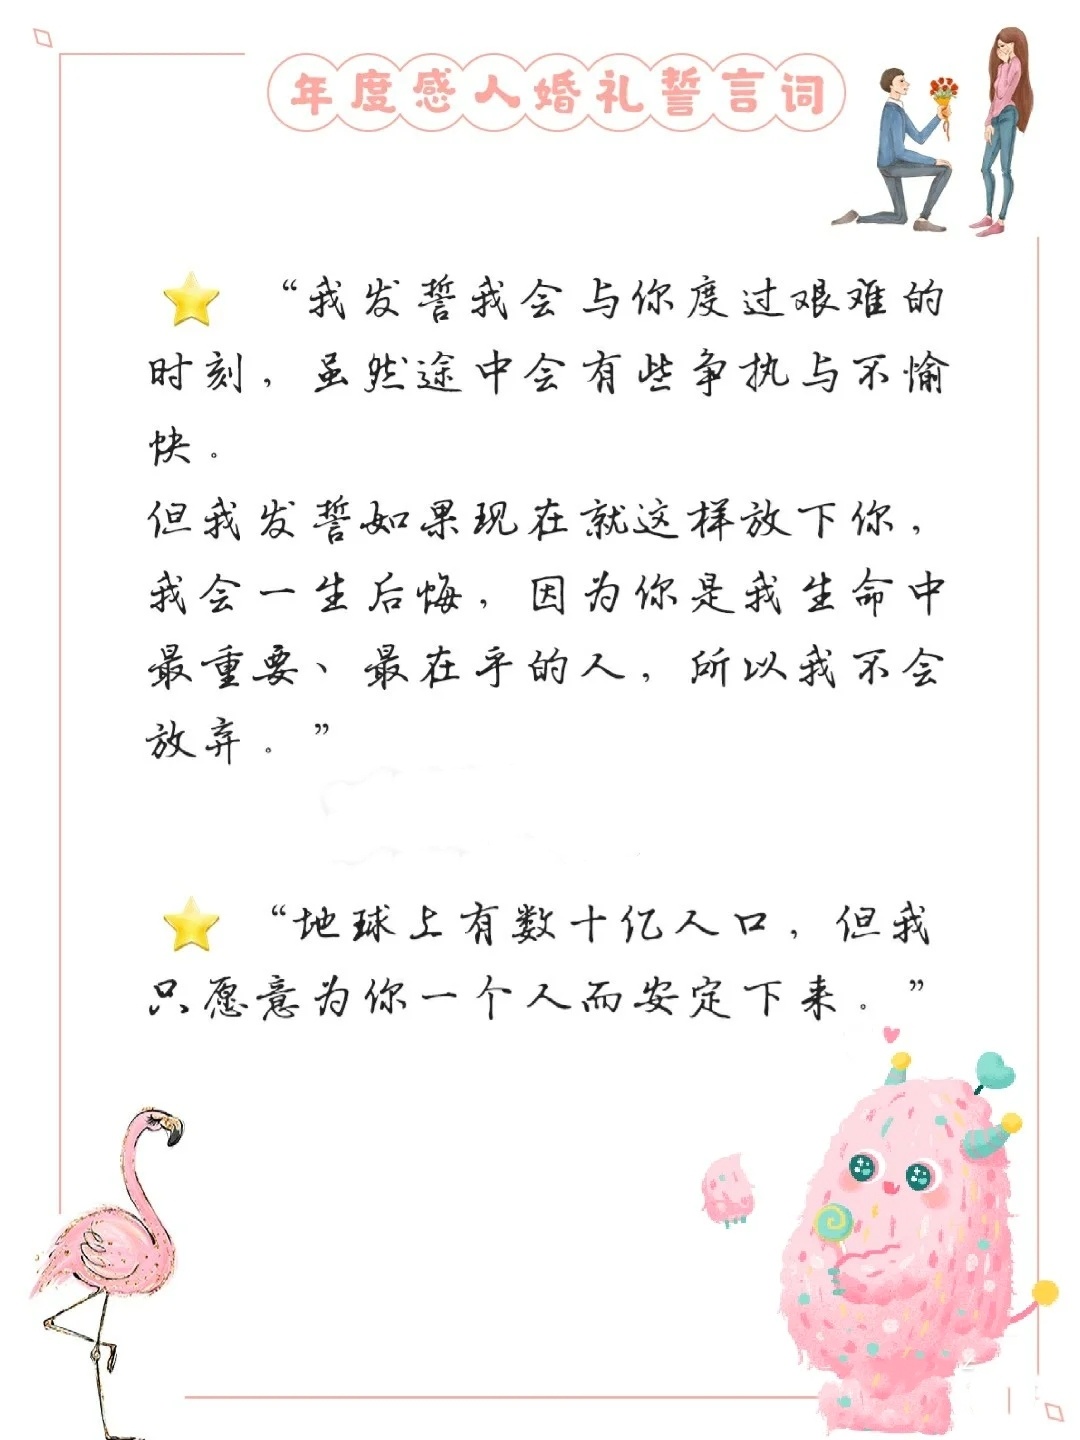 年度感人婚礼誓言词
“我发誓我会与你度过艰难的
时刻，虽然途中会有些争执与不愉
快。
但我发誓如果现在就这样放下你，
我会一生后悔，因为你是我生命中
最重要、最在乎的人，所以我不会
放弃。”
“地球上有数十亿人口，但我
只愿意为你一个人而安定下来。”